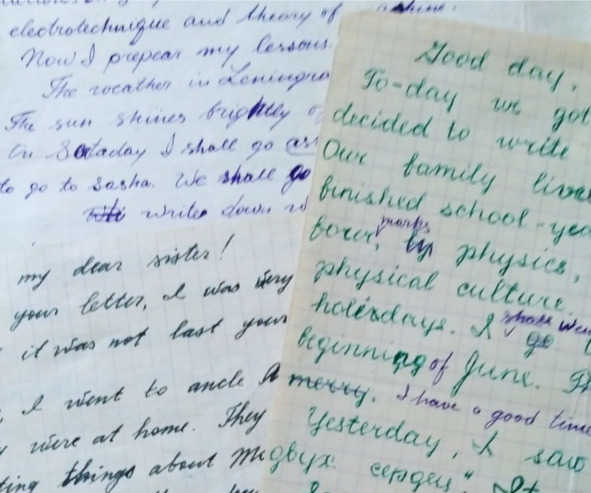 electrotechnique and theory of
Now I prepear my lessons.
The weather in Leningra
The sun shines brightly
On Sataday I shall go
to go to Sasha. We shall go
write down
my dear sister!
your letter, I was very
it was not last your
I went to uncle
were at home. They
ting things about
Good day,
To-day we got
decided to write
Our family live
finished school-yea
four, marks by physics,
physical culture.
holesdays. I shall go
beginning of June. Th
merry. I have a good time
Yesterday, I saw
двух сердец"